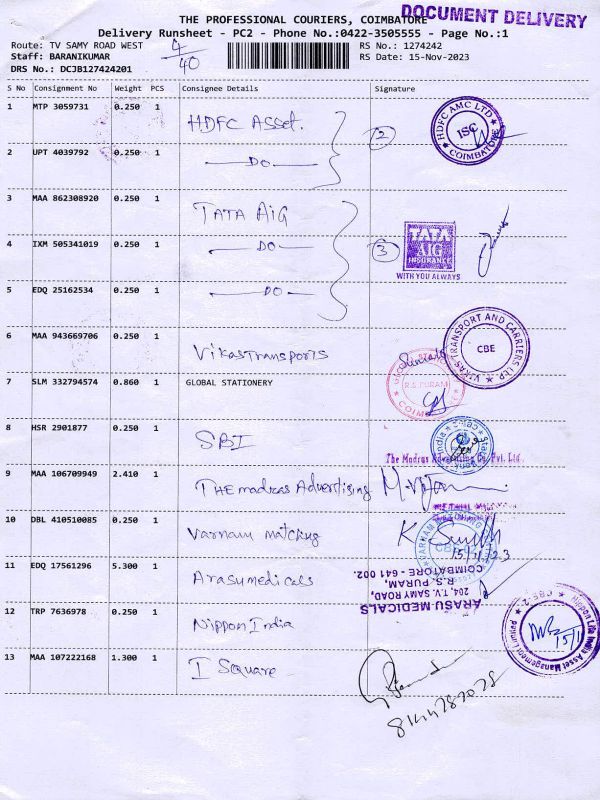 DOCUMENT DELIVERY
THE PROFESSIONAL COURIERS, COIMBATORE
Delivery Runsheet - PC2 - Phone No.:0422-3505555 - Page No.:1
Route: TV SAMY ROAD WEST
4/40
RS No.: 1274242
Staff: BARANIKUMAR
RS Date: 15-Nov-2023
DRS No.: DCJB127424201
S No Consignment No Weight PCS Consignee Details Signature
1 MTP 3059731 0.250 1 HDFC Asset.
HDFC AMC LTD
ISC
COIMBATORE
2
2 UPT 4039792 0.250 1 DO
3 MAA 862308920 0.250 1 TATA AIG
4 IXM 505341019 0.250 1 DO
3
TATA
AIG
INSURANCE
WITH YOU ALWAYS
5 EDQ 25162534 0.250 1 DO
6 MAA 943669706 0.250 1 Vikastransports
VIKAS TRANSPORT AND CARRIERS LLP
CBE
7 SLM 332794574 0.860 1 GLOBAL STATIONERY
R.S. PURAM
8 HSR 2901877 0.250 1 SBI
The Madras Advertising Co. Pvt. Ltd.
9 MAA 106709949 2.410 1 THE madras Advertising
10 DBL 410510085 0.250 1 Varnam matching
15/11/23
11 EDQ 17561296 5.300 1 Arasumedicals
ARASU MEDICALS
204, T.V. SAMY ROAD,
R.S. PURAM,
COIMBATORE - 641 002.
12 TRP 7636978 0.250 1 Nippon India
Nippon Life India Asset Management Limited
CBE-2
15/1
13 MAA 107222168 1.300 1 I Square